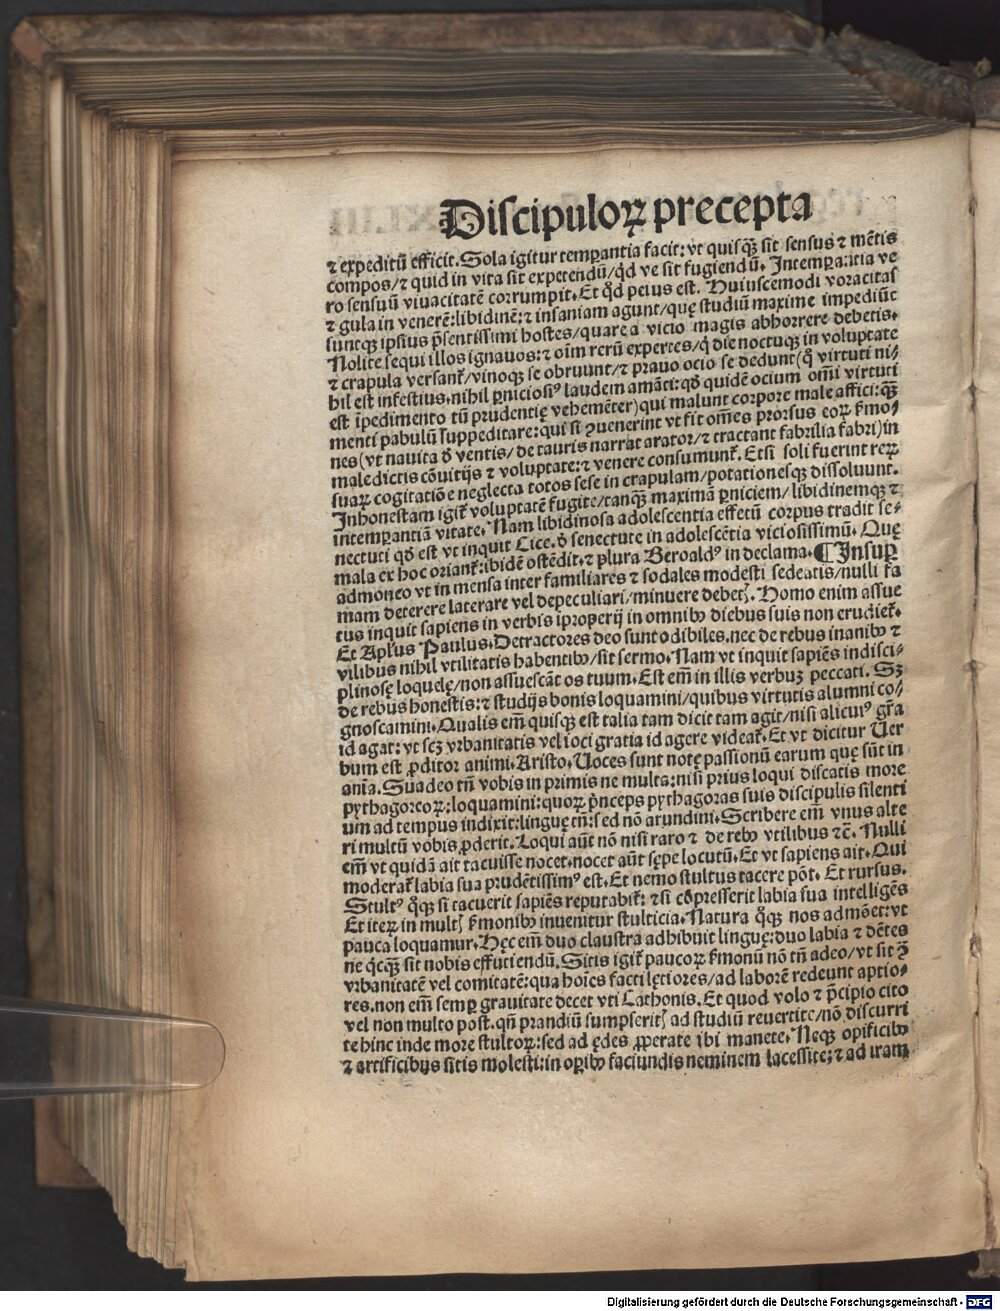 Discipuloꝝ precepta
⁊ expeditū efficit. Sola igitur temꝑantia facit: vt quisqꝫ sit sensus ⁊ mētis
compos/⁊ quid in vita sit expetendū/qd̓ ve sit fugiendū. Intemꝑantia ve
ro sensuū viuacitatē corrumpit. Et qd̓ peius est. Huiuscemodi voracitas
⁊ gula in venerē: libidinē: ⁊ insaniam agunt/quę studiū maxime impediūt
suntqꝫ ipsius p̄sentissimi hostes/quare a vicio magis abhorrere debetis.
Nolite sequi illos ignauos: ⁊ oīm rerū expertes/q̇ die noctuqꝫ in voluptate
⁊ crapula versant̃/vinoqꝫ se obruunt/⁊ prauo ocio se dedunt (q̇ virtuti ni/
hil est infestius. nihil ꝑniciosiꝰ laudem amāti: qd̓ quidē ocium omī virtuti
est īpedimento tū prudentię vehemēter) qui malunt corpore male affici: qꝫ
menti pabulū suppeditare: qui si ꝯuenerint vt fit om̄es prorsus eoꝝ ẜmo/
nes (vt nauita d̓ ventis/de tauris narrat arator/⁊ tractant fabrilia fabri) in
maledictis cōuitijs ⁊ voluptate: ⁊ venere consumunt̃. Etsi soli fuerint reꝝ
suaꝝ cogitatiōe neglecta totos sese in crapulam/potationesqꝫ dissoluunt.
Inhonestam igit̃ voluptatē fugite/tanqꝫ maximā ꝑniciem/libidinemqꝫ ⁊
intemꝑantiā vitate. Nam libidinosa adolescentia effetū corpus tradit se/
nectuti qd̓ est vt inquit Cice. d̓ senectute in adolescētia viciosissimū. Quę
mala ex hoc oriant̃: ibidē ostēdit. ⁊ plura Beroaldꝰ in declama. ¶ Insuꝑ
admoneo vt in mensa inter familiares ⁊ sodales modesti sedeatis/nulli fa
mam deterere lacerare vel depeculiari/minuere debetꝭ. Homo enim assue
tus inquit sapiens in verbis īproperij in omnibꝰ diebus suis non erudiet̃.
Et Apl̓us Paulus. Detractores deo sunt odibiles. nec de rebus inanibꝰ ⁊
vilibus nihil vtilitatis habentibꝰ/sit sermo. Nam vt inquit sapiēs indisci/
plinosę loquelę/non assuescāt os tuum. Est em̄ in illis verbuꝫ peccati. Sꝫ
de rebus honestis: ⁊ studijs bonis loquamini/quibus virtutis alumni co/
gnoscamini. Qualis em̄ quisqꝫ est talia tam dicit tam agit/nisi alicuiꝰ gr̄a
id agat: vt scꝫ vrbanitatis vel ioci gratia id agere videat̃. Et vt dicitur Ver
bum est ꝓditor animi. Aristo. Voces sunt notę passionū earum quę sūt in
anīa. Suadeo tn̄ vobis in primis ne multa: nisi prius loqui discatis more
pythagoreoꝝ: loquamini: quoꝝ p̄nceps pythagoras suis discipulis silenti
um ad tempus indixit: linguę tn̄: sed nō arundini. Scribere em̄ vnus alte
ri multū vobis ꝓderit. Loqui aūt nō nisi raro ⁊ de rebꝰ vtilibus ⁊c̄. Nulli
em̄ vt quidā ait tacuisse nocet. nocet aūt sępe locutū. Et vt sapiens ait. Qui
moderat̃ labia sua prudētissimꝰ est. Et nemo stultus tacere pōt. Et rursus.
Stultꝰ q̊qꝫ si tacuerit sapiēs reputabit̃: ⁊ si cōpresserit labia sua intelligēs
Et iteꝝ in multꝭ ẜmonibꝰ inuenitur stulticia. Natura q̊qꝫ nos admōet: vt
pauca loquamur. Hęc em̄ duo claustra adhibuit linguę: duo labia ⁊ dētes
ne qͥcqꝫ sit nobis effutiendū. Sitis igit̃ paucoꝝ ẜmonū nō tn̄ adeo/vt sit ꝯ̄
vrbanitatē vel comitatē: qua hoīes facti lętiores/ad laborē redeunt aptio/
res. non em̄ semꝑ grauitate decet vti Cathonis. Et quod volo ⁊ p̄cipio cito
vel non multo post. qn̄ prandiū sumpseritꝭ ad studiū reuertite/nō discurri
te hinc inde more stultoꝝ: sed ad ędes ꝓperate ibi manete. Neqꝫ opificibꝰ
⁊ artificibus sitis molesti: in oꝑibꝰ faciundis neminem lacessite: ⁊ ad iram
Digitalisierung gefördert durch die Deutsche Forschungsgemeinschaft - DFG